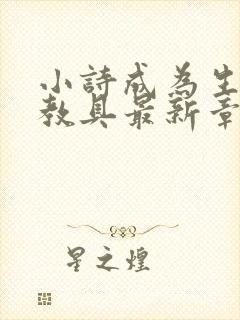 小詩成為生
教具最新章
星之煌